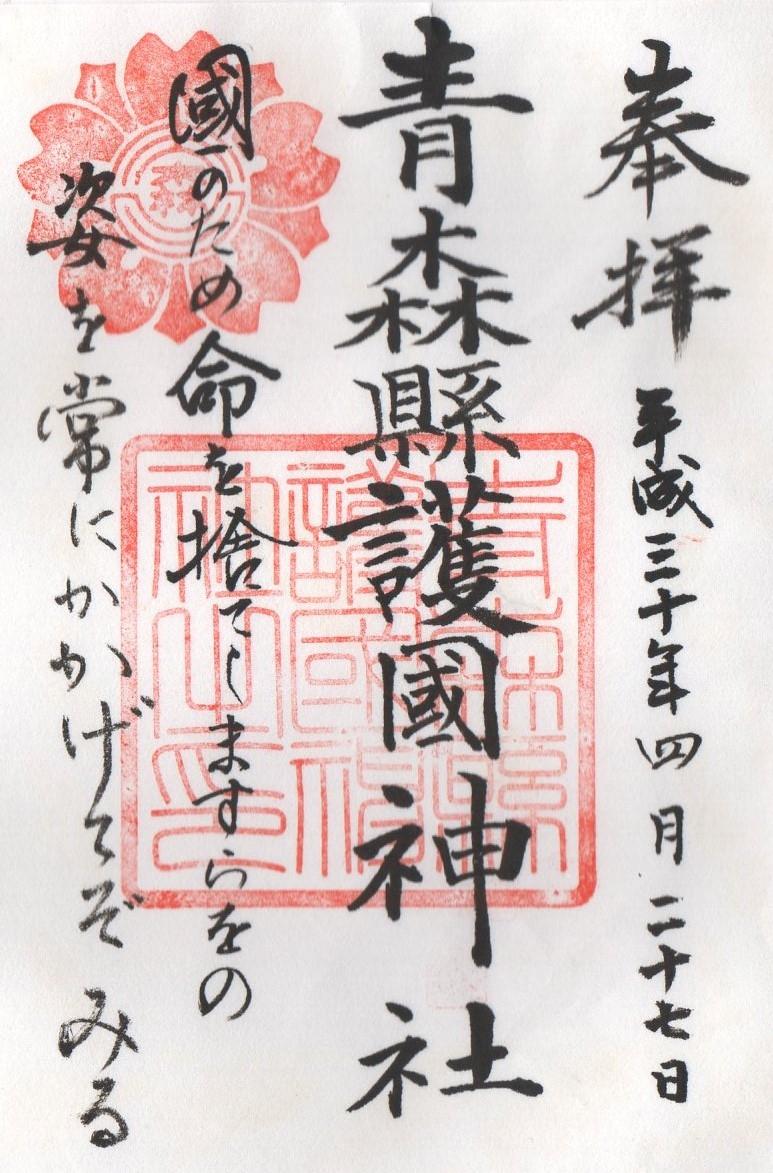 奉拝 平成三十年四月二十七日
青森縣護國神社
國のため命を捨てしますらをの
姿を常にかかげてぞみる
青森縣護國神社之印